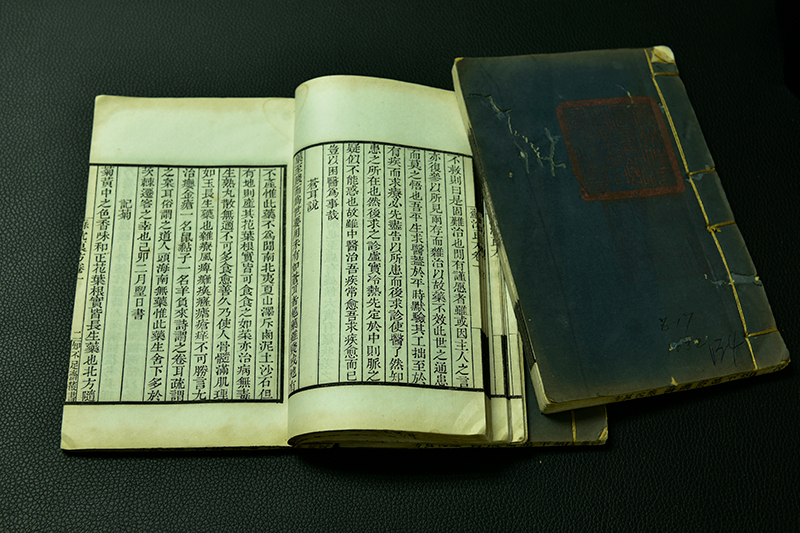 不救則曰是固難治也間有謹愿者雖或因主人之言
亦復參以所見兩存而雜治以故藥不效此世之通患
而莫之悟也吾平生求醫蓋於平時默驗其工拙至於
有疾而求療必先盡告以所患而後求診使醫了然知
患之所在也然後求之診虛實冷熱先定於中則脈之
疑似不能惑也故雖中醫治吾疾常愈吾求疾愈而已
豈以困醫爲事哉
蒼耳說
藥至賤而爲世要用未有如蒼耳者他藥雖賤或地有
不產惟此藥不爲間南北夷夏山澤斥鹵泥土沙石但
有地則產其花葉根實皆可食食之如菜亦治病無毒
生熟丸散無適不可多食愈善久乃使人骨髓滿肌理
如玉長生藥也雜療風痺癱瘓癃瘡痒不可勝言尤
治癭金瘡一名鼠黏子一名羊負來詩謂之卷耳疏謂
之枲耳俗謂之道人頭海南無藥惟此藥生舍下多於
茨棘遷客之幸也己卯二月望日書
記菊
菊黃中之色香味和正花葉根實皆長生藥也北方隨
方卷一
知不足齋叢書